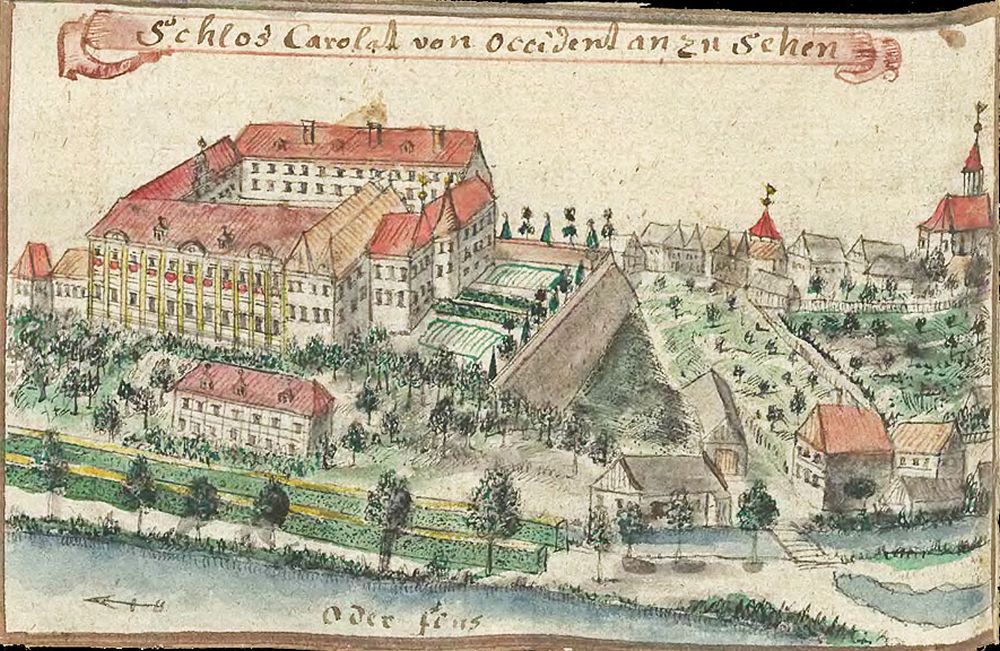 Schlos Carolat von Occident an zu sehen
Oder flus